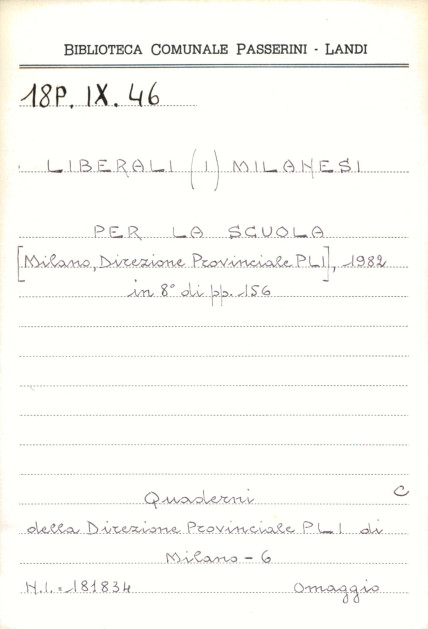 BIBLIOTECA COMUNALE PASSERINI - LANDI
18P. IX. 46
LIBERALI (I) MILANESI
PER LA SCUOLA
[Milano, Direzione Provinciale PLI], 1982
in 8° di pp. 156
Quaderni
C
della Direzione Provinciale PLI di
Milano - 6
N.I. = 181834 Omaggio